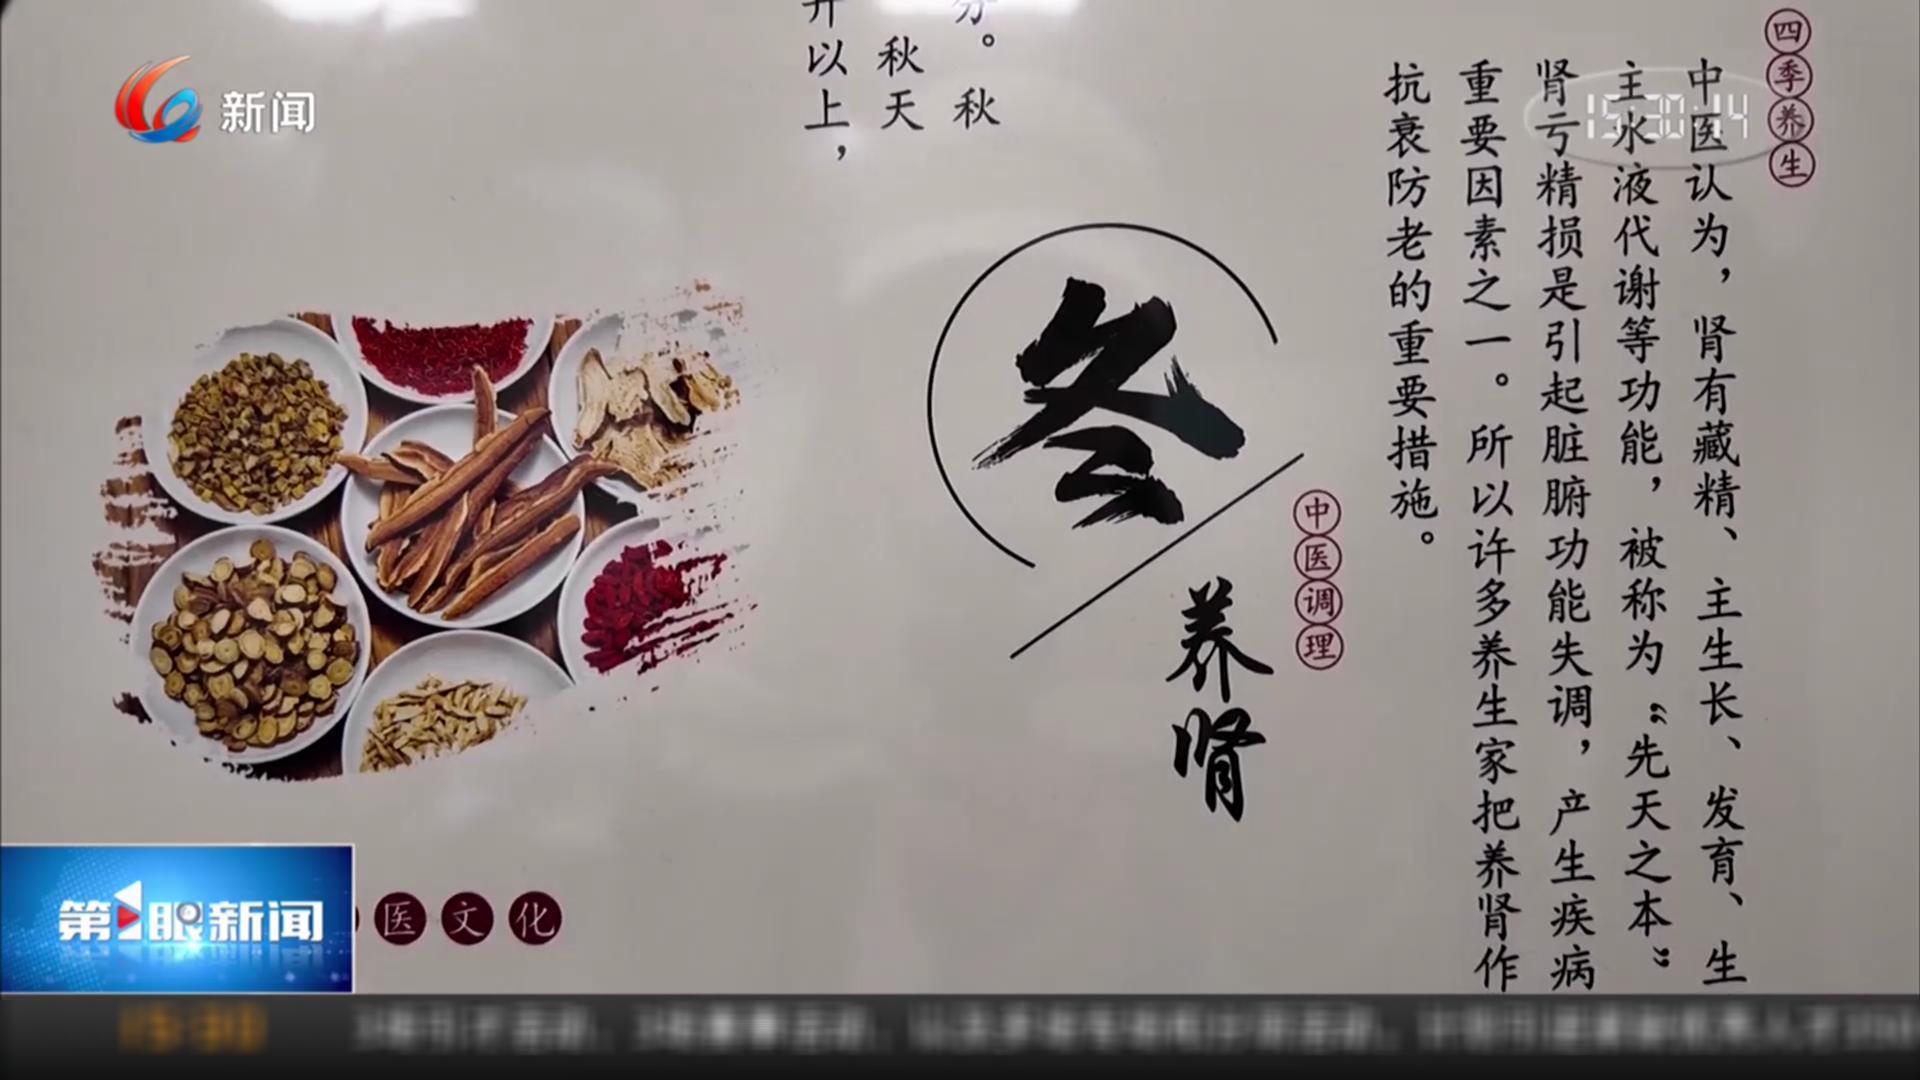 新闻
15:30:14
四季养生
中医认为，肾有藏精、主生长、发育、生
主水液代谢等功能，被称为“先天之本”
肾亏精损是引起脏腑功能失调，产生疾病
重要因素之一。所以许多养生家把养肾作
抗衰防老的重要措施。
中医调理
叁
养肾
秋
秋天
以上，
医文化
第1眼新闻
15:30